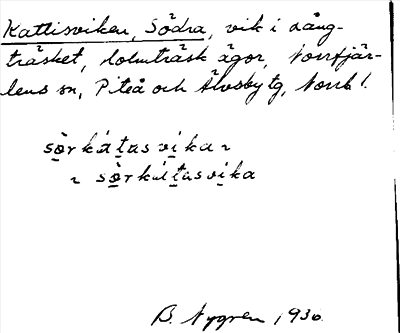 Kattisviken, Södra, vik i Lång-
träsket, Lomträsk ägor, Norrfjär-
dens sn, Piteå och Älvsby tg, Norrb l.
sörkátasvika ~
~ sörkátasvika
B. Nygren 1930